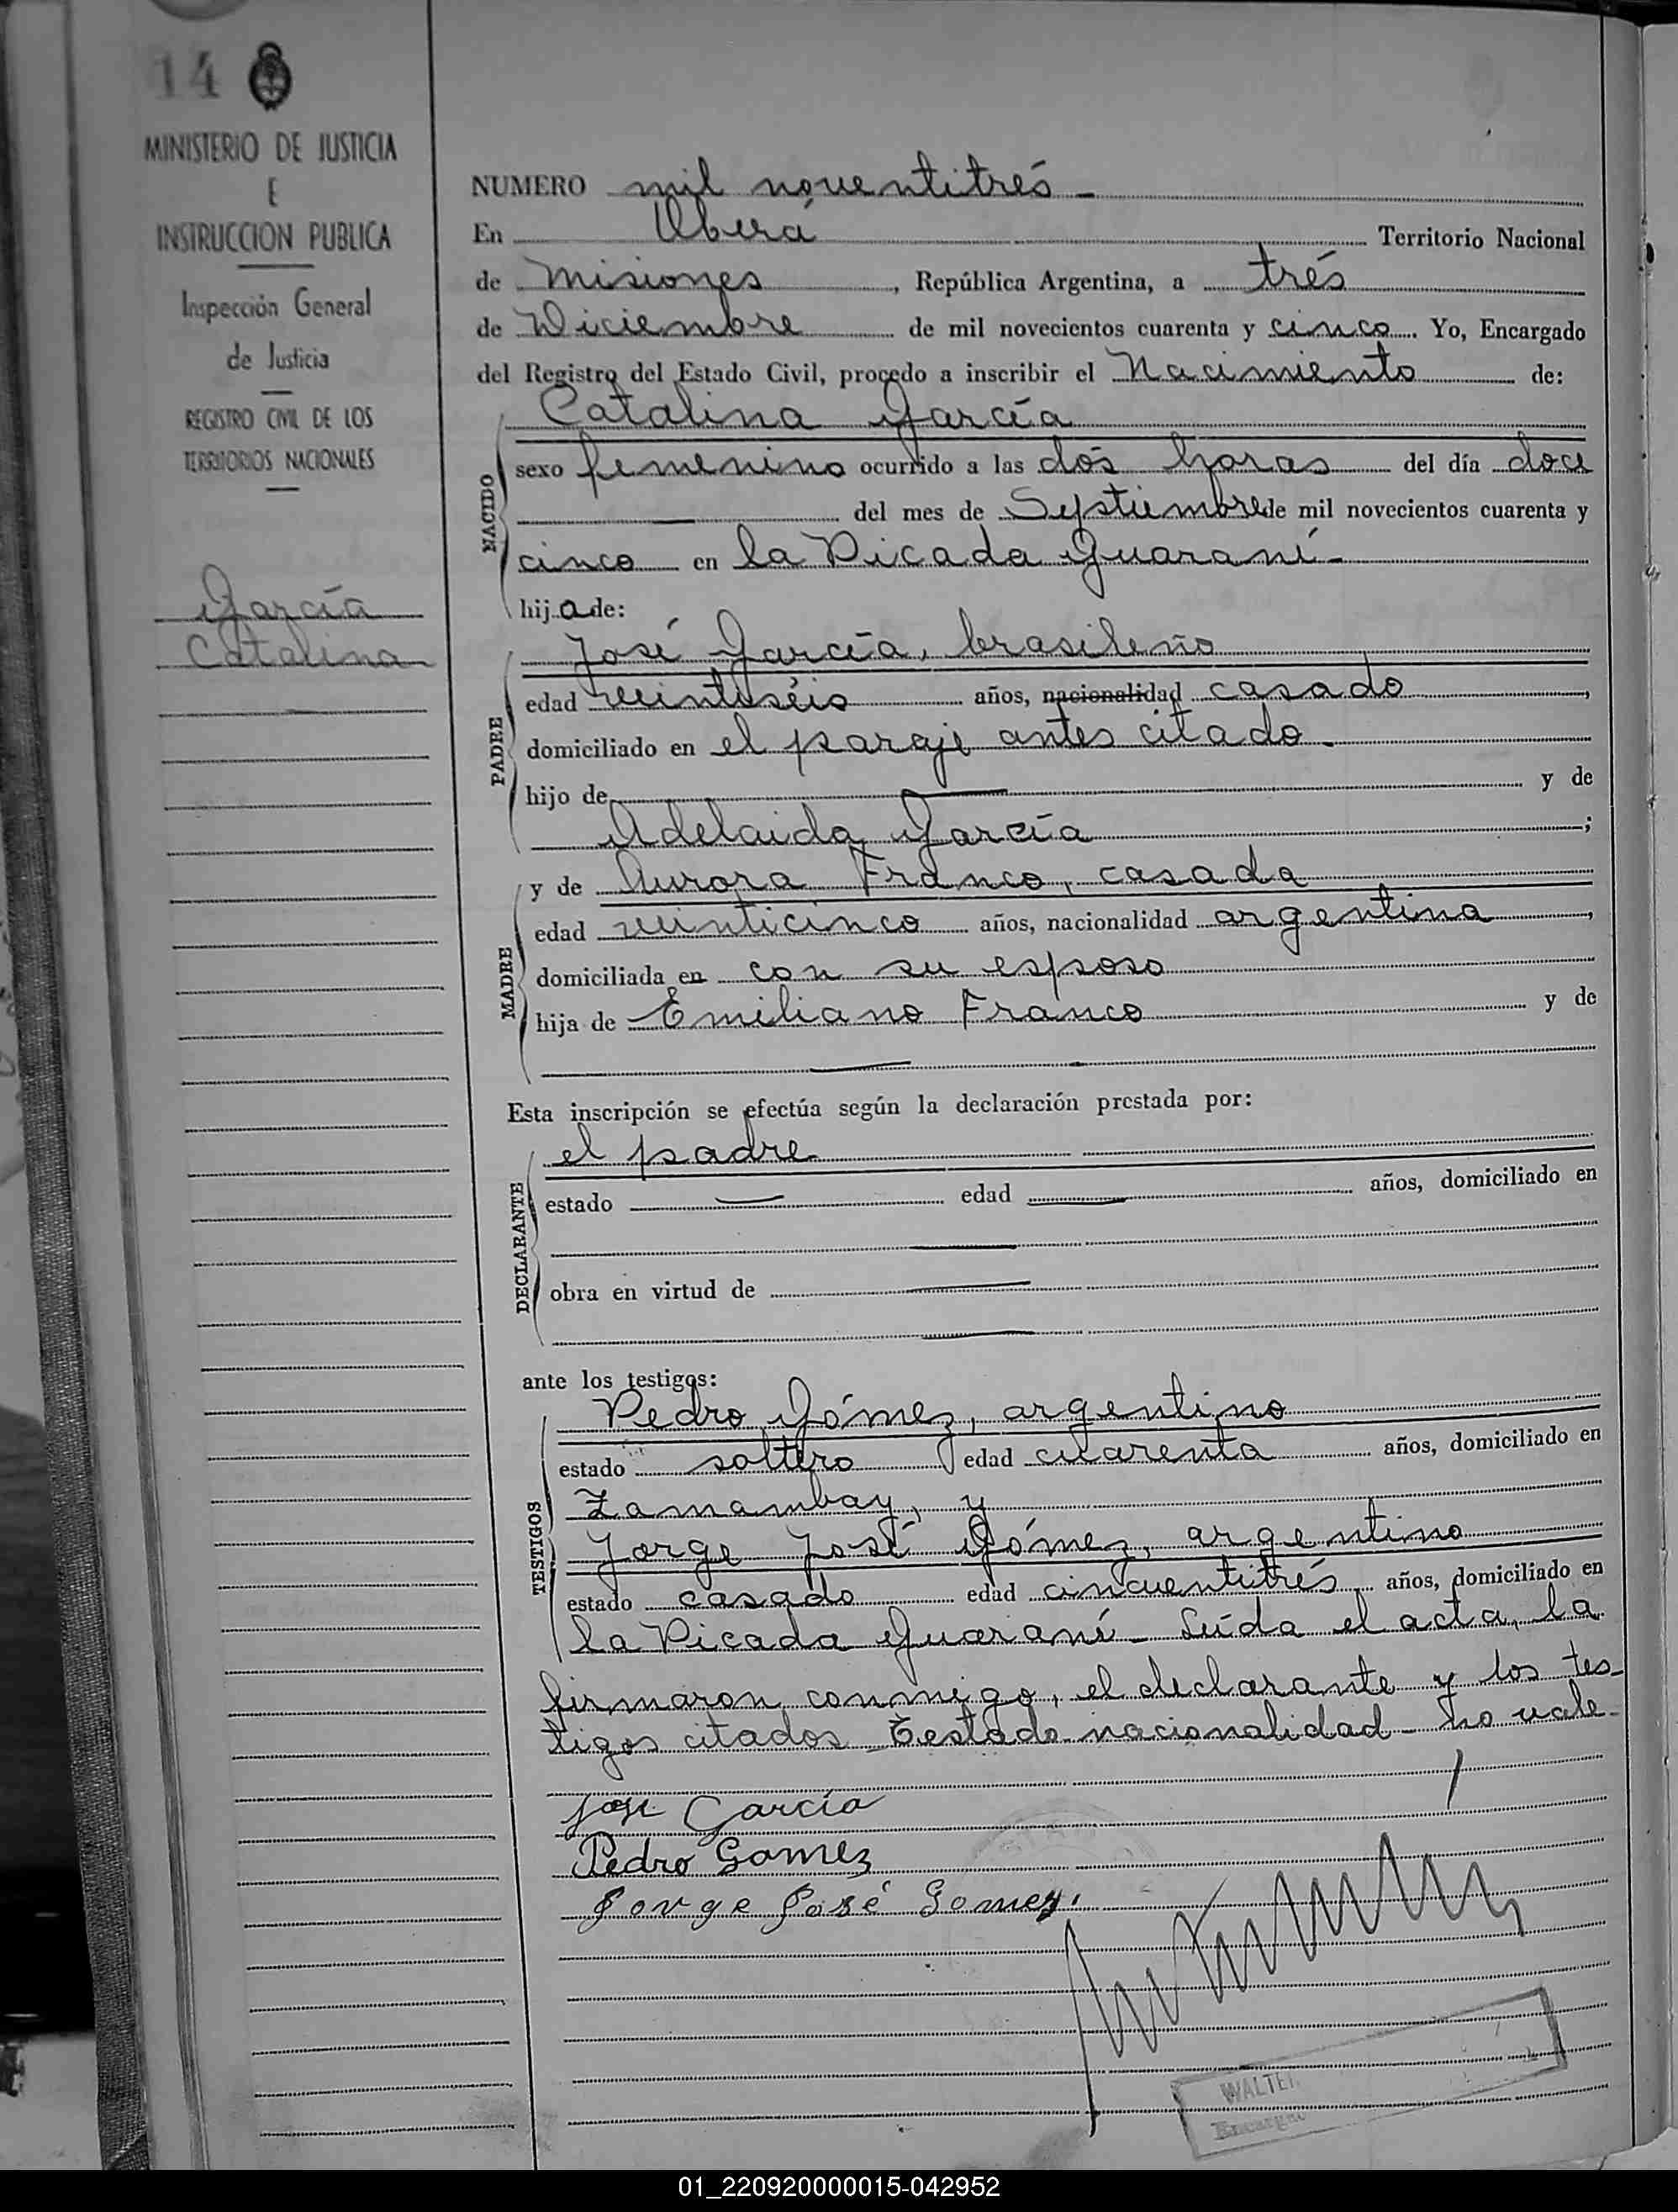 14
MINISTERIO DE JUSTICIA
E
INSTRUCCION PUBLICA
Inspección General
de Justicia
REGISTRO CIVIL DE LOS
TERRITORIOS NACIONALES
García
Catalina
NUMERO mil noventitrés
En Oberá Territorio Nacional
de Misiones, República Argentina, a trés
de Diciembre de mil novecientos cuarenta y cinco. Yo, Encargado
del Registro del Estado Civil, procedo a inscribir el Nacimiento de:
Catalina García
NACIDO
sexo femenino ocurrido a las dós horas del día doce
del mes de Septiembre de mil novecientos cuarenta y
cinco en la Picada Guaraní
hija de:
José García, brasileño
PADRE
edad veintiséis años, nacionalidad casado,
domiciliado en el paraje antes citado.
hijo de y de
Adelaida García;
y de Aurora Franco, casada
MADRE
edad veinticinco años, nacionalidad argentina,
domiciliada en con su esposo
hija de Emiliano Franco y de
Esta inscripción se efectúa según la declaración prestada por:
el padre
DECLARANTE
estado edad años, domiciliado en
obra en virtud de
ante los testigos:
Pedro Gómez, argentino
TESTIGOS
estado soltero edad cuarenta años, domiciliado en
Zamambay, y
Jorge José Gómez, argentino
estado casado edad cincuentitrés años, domiciliado en
la Picada Guaraní - Leída el acta, la
firmaron conmigo, el declarante y los tes-
tigos citados - Testado nacionalidad - no vale -
Jose García
Pedro Gomez
Jorge José Gomez.
WALTER
Encargado
01_220920000015-042952